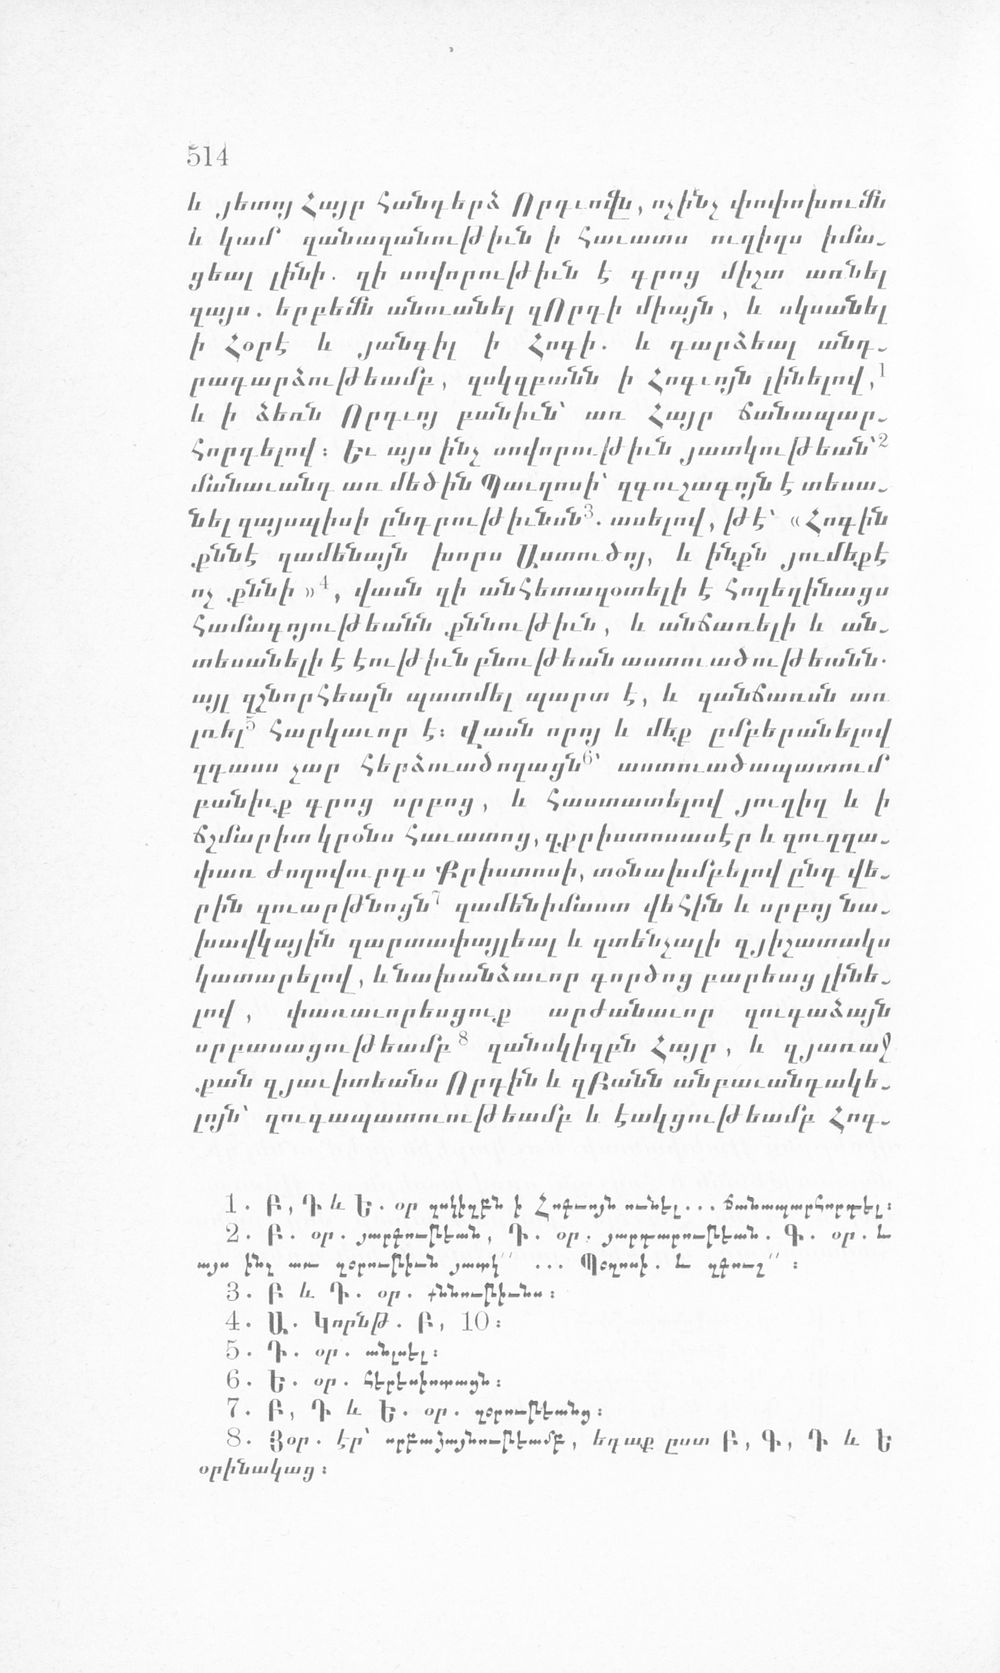 514
և յետոյ Հայր հանդերձ Որդւովն, ոչինչ փոփոխումն
և կամ զանազանութիւն ի հաւատս ուղիղս իմա-
ցեալ լինի. զի սովորութիւն է գրոց միշտ առնել
զայս. երբեմն անուանել զՈրդի միայն, և սկսանել
ի Հօրէ և յանգիլ ի Հոգի. և դարձեալ անդ-
րադարձութեամբ, զսկզբանն ի Հոգւոյն լինելով,1
և ի ձեռն Որդւոյ բանիւն՝ առ Հայր ճանապար-
հորդելով։ Եւ այս ինչ սովորութիւն յատկութեան՝2
մանաւանդ առ մեծին Պաւղոսի՝ զգուշագոյն է տեսա-
նել զայսպիսի ընդրութիւնսն3. ասելով, թէ՝ «Հոգին
քննէ զամենայն խորս Աստուծոյ, և ինքն յումեքէ
ոչ քննի»4, վասն զի անհետազօտելի է հողեղինացս
համագոյութեանն քննութիւն, և անճառելի և ան-
տեսանելի է էութիւն բնութեան աստուածութեանն.
այլ զշնորհեալն պատմել պարտ է, և զանճառսն առ
լռել5 հարկաւոր է։ Վասն որոյ և մեք ըմբերանելով
զդասս չար հերձուածողացն6՝ աստուածապատում
բանիւք գրոց սրբոց, և հաստատելով յուղիղ և ի
ճշմարիտ կրօնս հաւատոց, զքրիստոսասէր և զուղղա-
փառ ժողովուրդս Քրիստոսի, տօնախմբելով ընդ վե-
րին զուարթնոցն7 զամենիմաստ վեհին և սրբոյ նա-
խավկային զարտափայլեալ և զտենչալի զյիշատակս
կատարելով, և նախանձաւոր գործոց բարեաց լինե-
լով, փառաւորեսցուք արժանաւոր զուգաձայն
սրբասացութեամբ8 զանսկիզբն Հայր, և զյառաջ
քան զյաւիտեանս Որդին և զԲանն անբաւանդակե-
լոյն՝ զուգապատուութեամբ և էակցութեամբ Հոգ-
1. Բ, Դ և Ե. օր զսկիզբն ի Հոգւոյն ունել... ճանապարհորդել։
2. Բ. օր. յարգութեան, Դ. օր. յարդարութեան. Գ. օր. և
այս ինչ առ զօրութիւն յատկ՛՛ ... Պօղոսի. և զգուշ՛՛ ։
3. Բ և Դ. օր. քննութիւնս։
4. Ա. Կորնթ. Բ, 10։
5. Դ. օր. անլսել։
6. Ե. օր. հերեսիոտացն։
7. Բ, Դ և Ե. օր. զօրութեանց։
8. Յօր. էր՝ սրբաձայնութեամբ, եդաք ըստ Բ, Գ, Դ և Ե
օրինակաց։